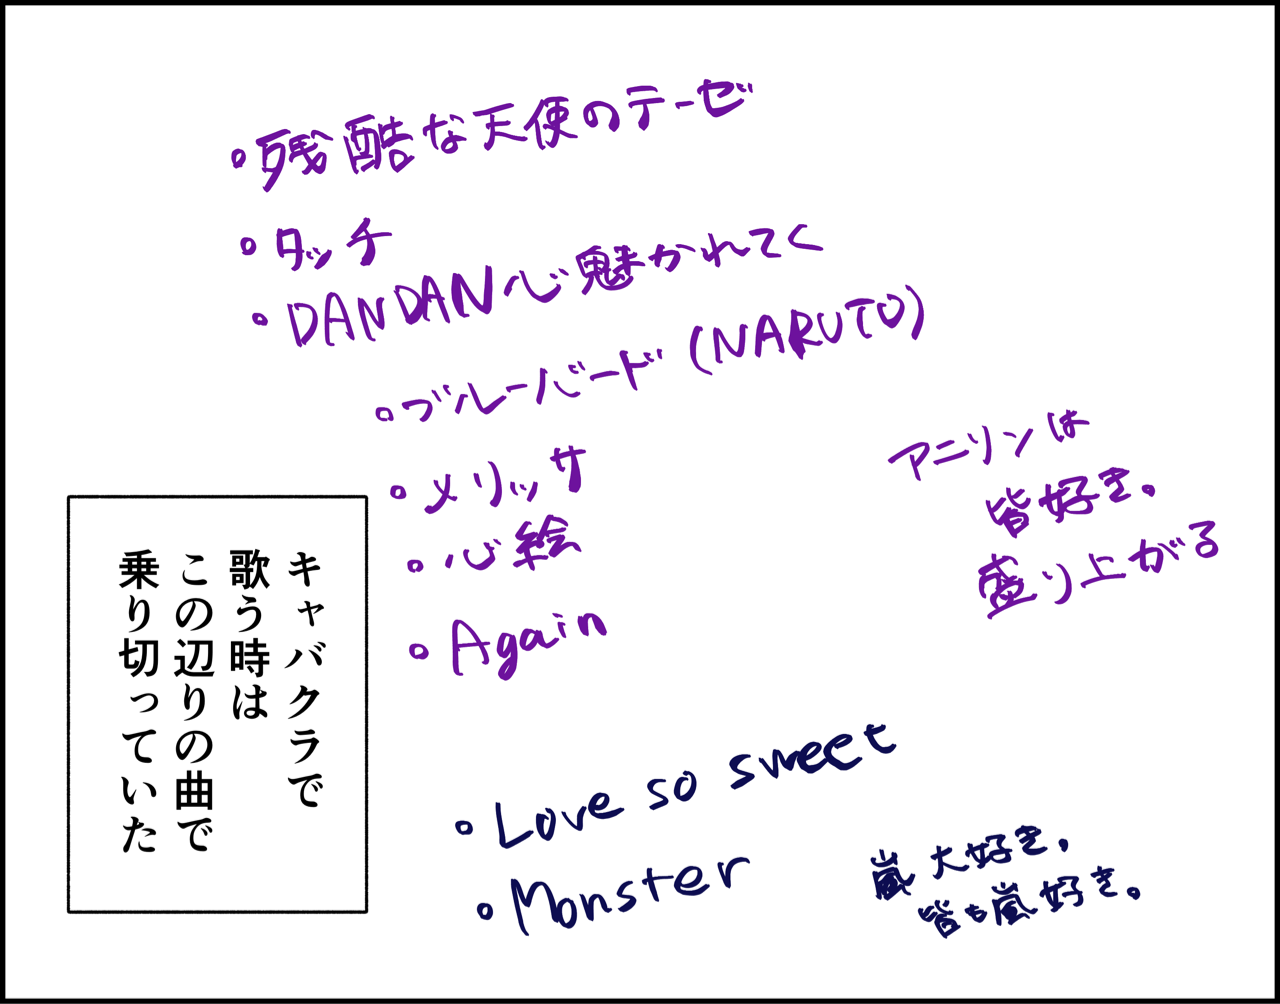 ・残酷な天使のテーゼ
・タッチ
・DANDAN心魅かれてく
・ブルーバード(NARUTO)
・メリッサ
・心絵
・Again
アニソンは
皆好き。
盛り上がる
キャバクラで
歌う時は
この辺りの曲で
乗り切っていた
・Love so sweet
・Monster
嵐大好き。
皆も嵐好き。